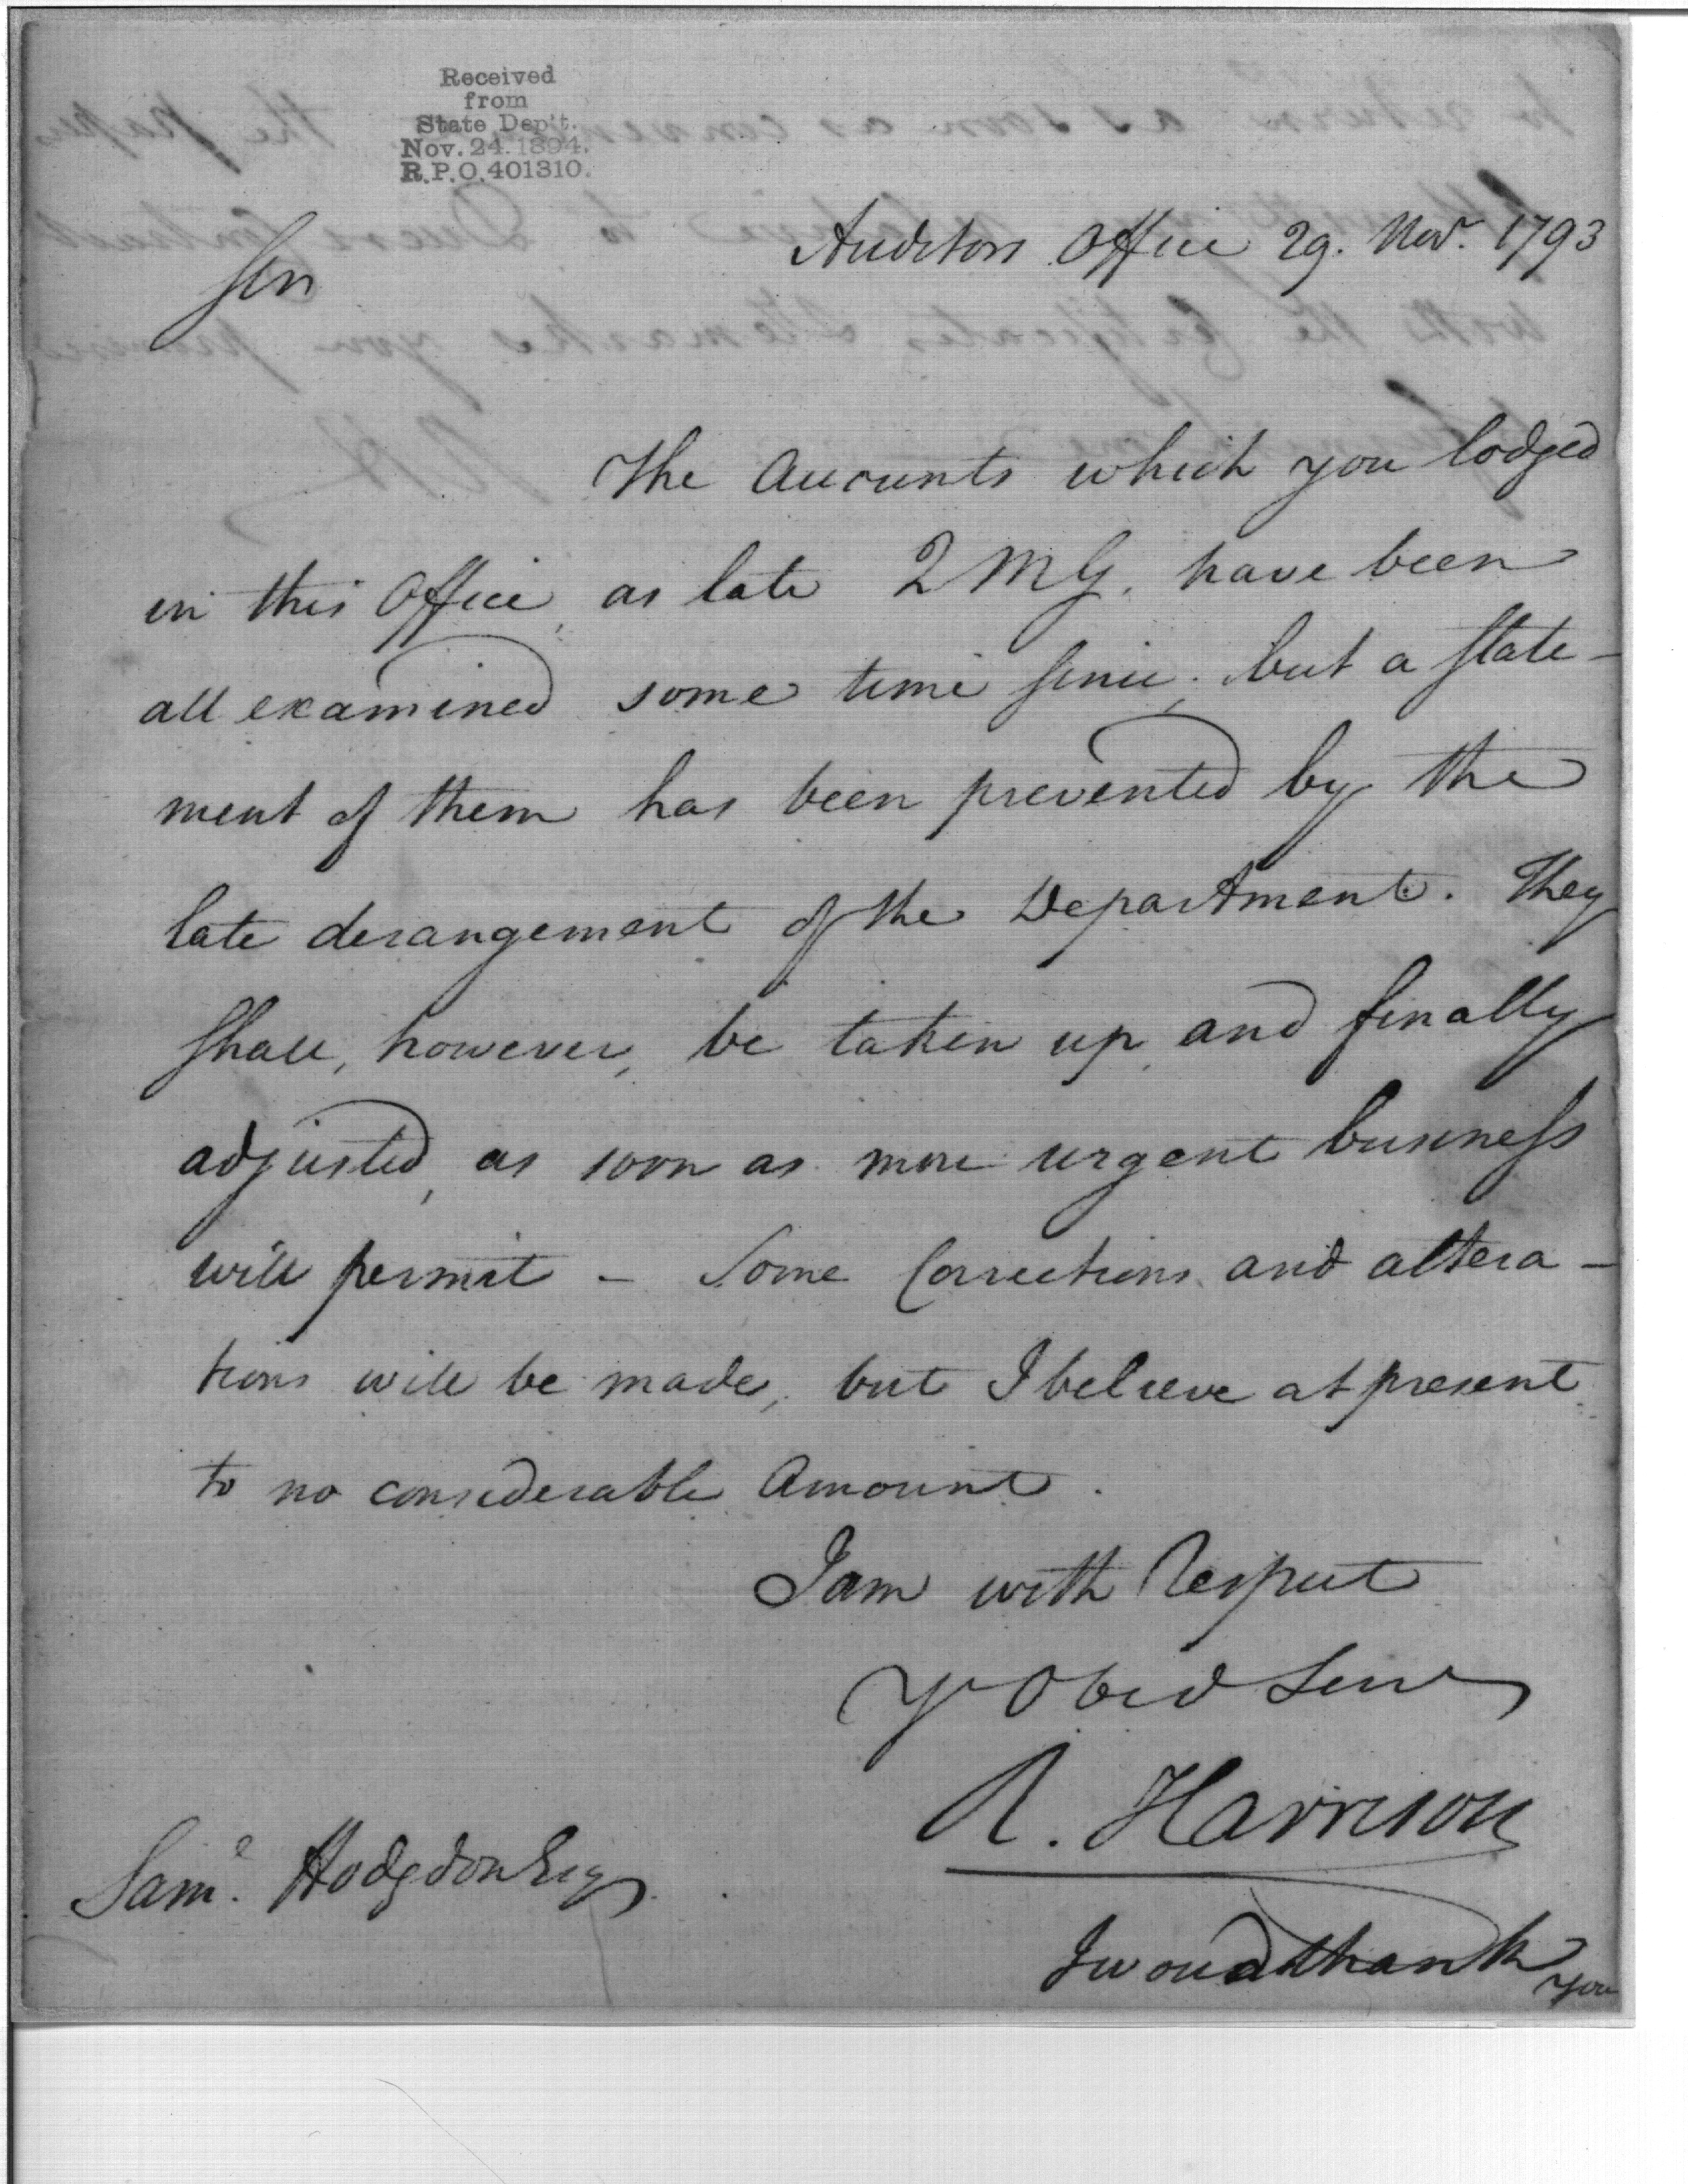 Received
from
State Dep't.
Nov. 24. 1894.
R.P.O. 401310.
Auditors Office 29. Nov.r 1793
Sir
The Accounts which you lodged
in this Office, as late QMG. have been
all examined some time since; but a state-
ment of them has been prevented by the
late derangement of the Department. They
shall, however, be taken up, and finally
adjusted, as soon as more urgent business
will permit - Some Corrections and altera-
tions will be made, but I believe at present
to no considerable Amount.
I am with Respect
Yr Obed Serv
R. Harrison
Saml. Hodgdon Esq
I would thank
you